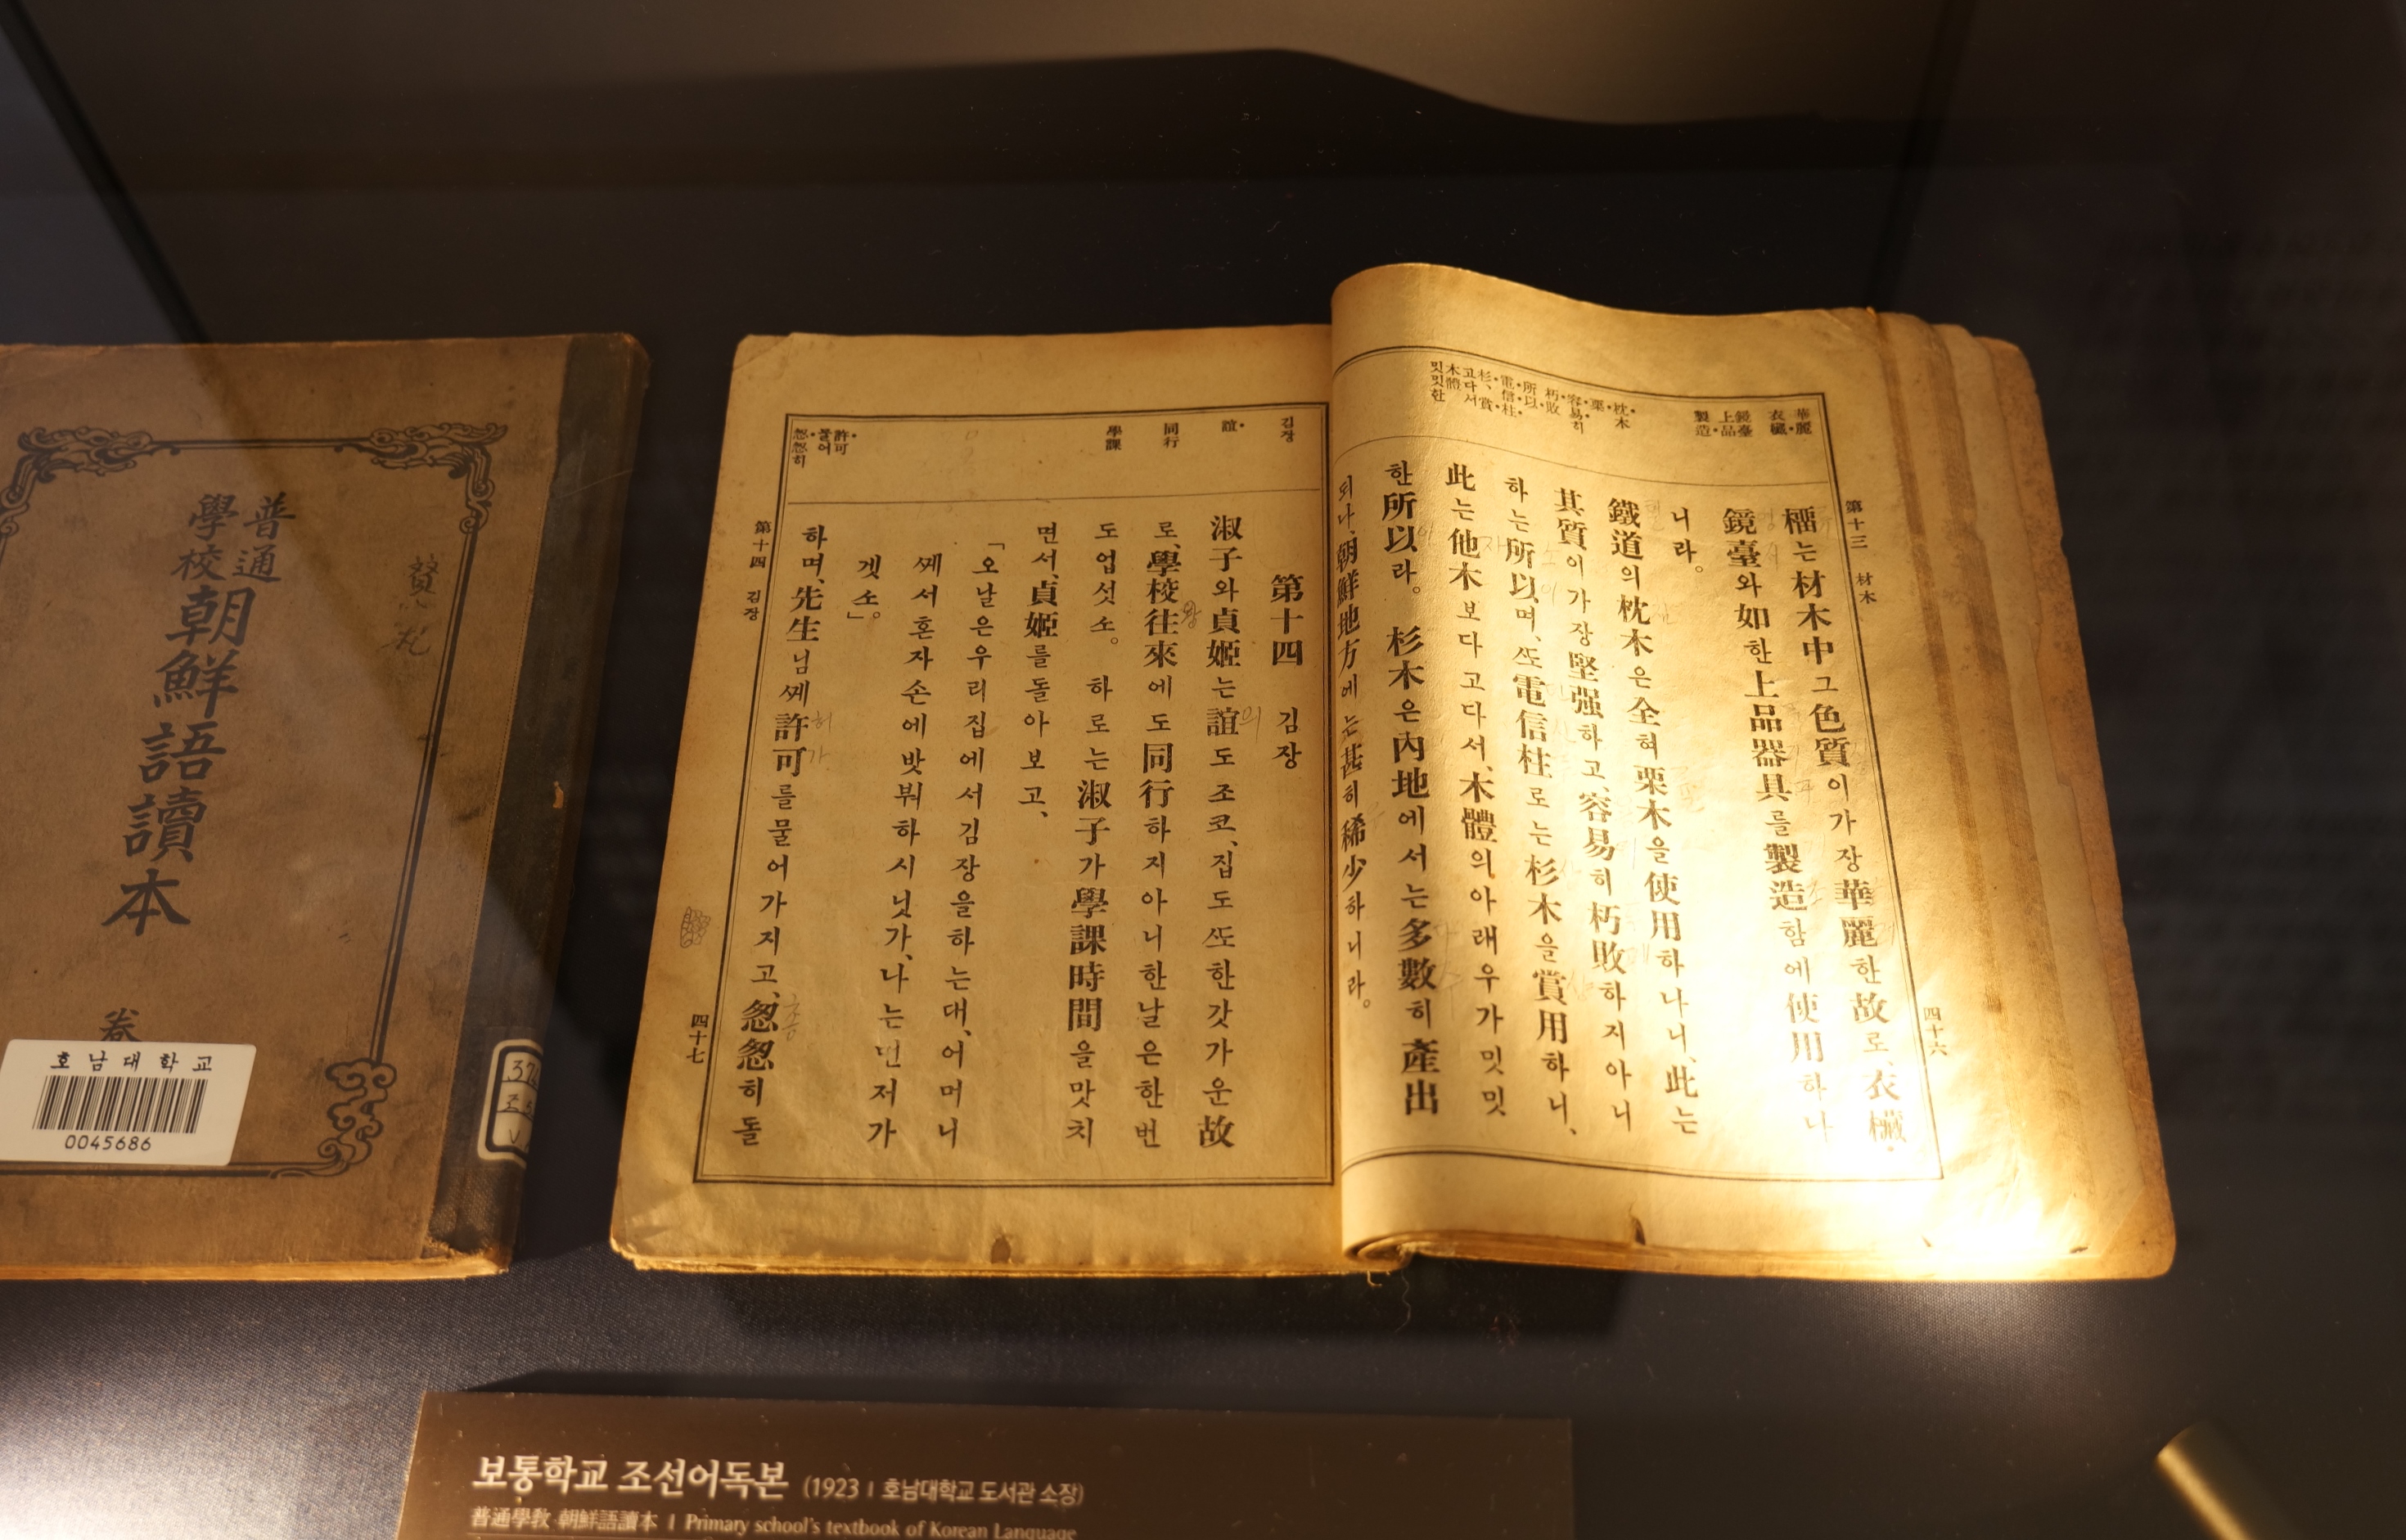 普通
學校
朝鮮語讀本
卷
호남대학교
0045686
華麗
衣欌
鏡臺
上品
製造
枕木
栗
容易히
朽敗
所以
電信柱
杉、賞
고다서
木體
밋밋한
第十三 材木
四十六
檑는材木中그色質이가장華麗한故로、衣欌、
鏡臺와如한上品器具를製造함에使用하나
니라。
鐵道의枕木은全혀栗木을使用하나니、此는
其質이가장堅强하고、容易히朽敗하지아니
하는所以며、ᄯᅩ電信柱로는杉木을賞用하니、
此는他木보다고다서、木體의아래우가밋밋
한所以라。 杉木은內地에서는多數히產出
되나、朝鮮地方에는甚히稀少하니라。
김장
誼
同行
學課
許可
물어
怱怱히
第十四 김장
淑子와貞姬는誼도조코、집도ᄯᅩ한갓가운故
로、學校往來에도同行하지아니한날은한번
도업섯소。 하로는淑子가學課時間을맛치
면서、貞姬를돌아보고、
「오날은우리집에서김장을하는대、어머니
ᄭᅦ서혼자손에밧붜하시닛가、나는먼저가
겟소」。
하며、先生님ᄭᅦ許可를물어가지고、怱怱히돌
第十四 김장
四十七
보통학교 조선어독본 (1923 I 호남대학교 도서관 소장)
普通學敎 朝鮮語讀本 I Primary school's textbook of Korean Language